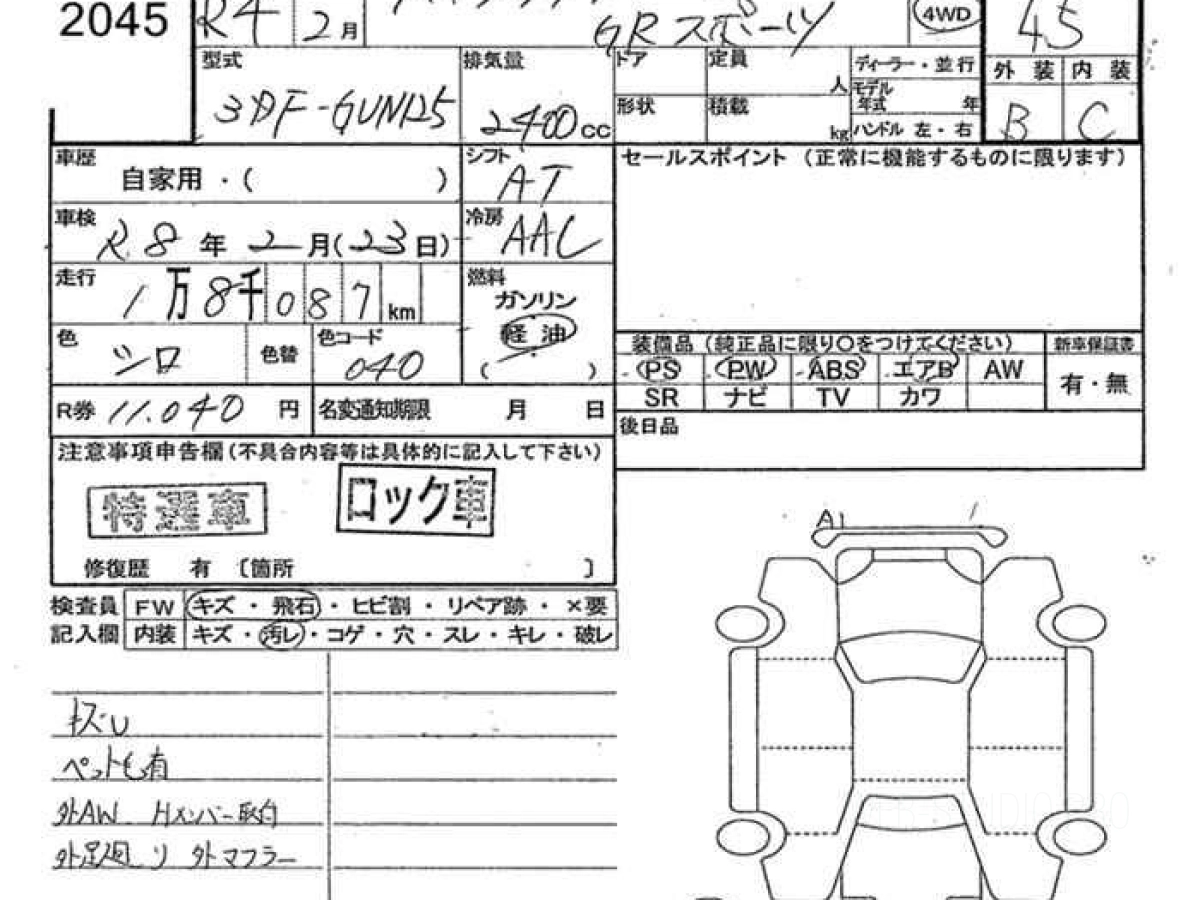 2045
R4 2月
GRスポーツ
4WD
45
外装 内装
B C
型式
3DF-GUN125
排気量
2400cc
ドア
定員
人
形状
積載
kg
ディーラー・並行
モデル年式 年
ハンドル 左・右
車歴
自家用・( )
シフト
AT
セールスポイント (正常に機能するものに限ります)
車検
R.8年2月(23日)
冷房
AAC
走行
1万8千087km
燃料
ガソリン
軽油
( )
色
シロ
色替
色コード
040
装備品 (純正品に限り○をつけてください) 新車保証書
PS PW ABS エアB AW 有・無
SR ナビ TV カワ
R券 11.040円 名変通知期限 月 日
後日品
注意事項申告欄(不具合内容等は具体的に記入して下さい)
特選車 ロック車
修復歴 有 〔箇所 〕
A1
検査員 FW キズ・飛石・ヒビ割・リペア跡・×要
記入欄 内装 キズ・汚レ・コゲ・穴・スレ・キレ・破レ
キズU
ペット毛有
外AW Hメンバー取付
外足廻り 外マフラー